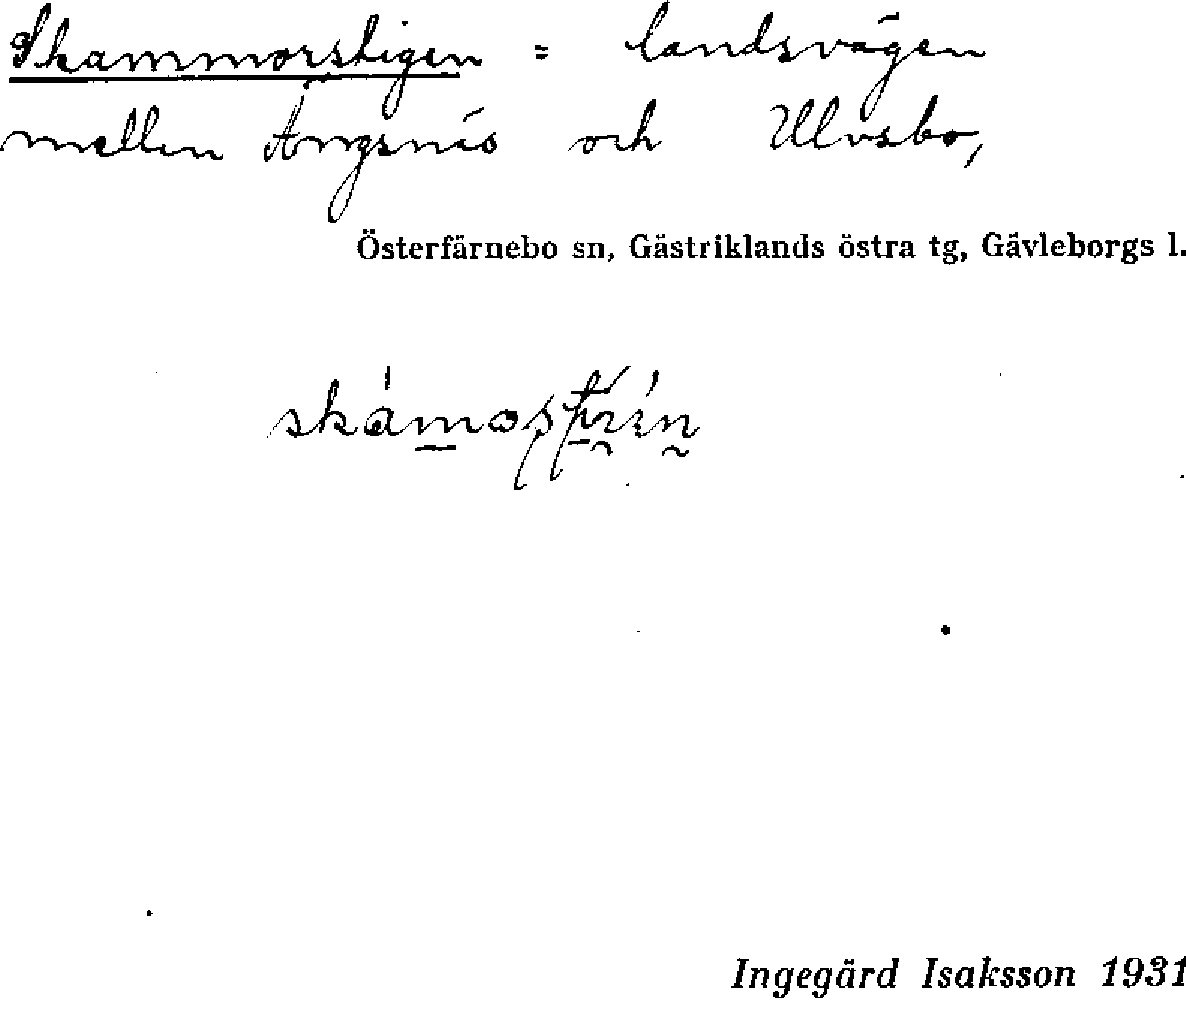 Skammorstigen = landsvägen
mellan Ängsnäs och Ulvsbo,
Österfärnebo sn, Gästriklands östra tg, Gävleborgs l.
Ingegärd Isaksson 1931